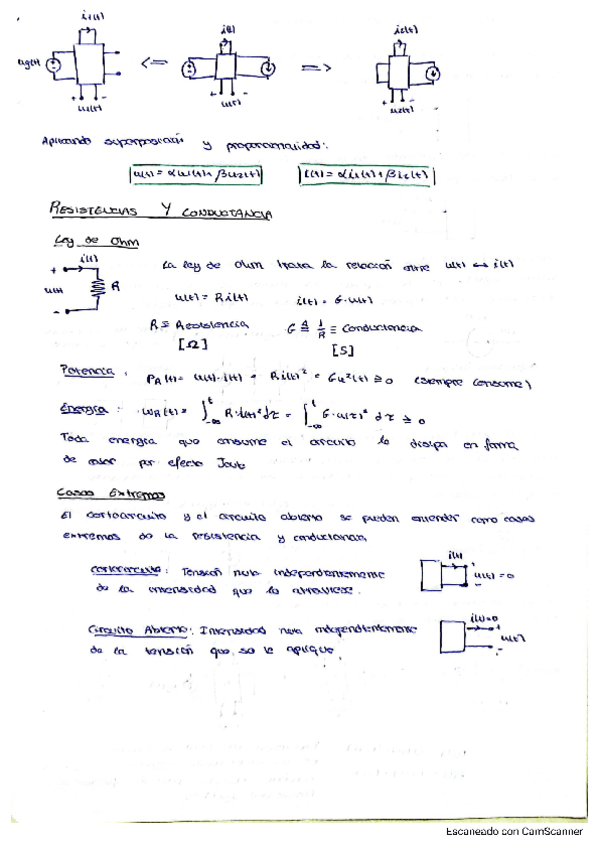 i₁(t) i(t) i₂(t)
ug(t) <= =>
u₁(t) u(t) u₂(t)
Aplicando superposición y proporcionalidad:
u(t) = αu₁(t) + βu₂(t) i(t) = αi₁(t) + βi₂(t)
RESISTENCIAS Y CONDUCTANCIA
Ley de Ohm
i(t)
+ u(t) - R
La ley de Ohm trata la relación entre u(t) ↔ i(t)
u(t) = R i(t) i(t) = G·u(t)
R ≡ Resistencia G ≜ 1/R ≡ Conductancia
[Ω] [S]
Potencia: PR(t) = u(t)·i(t) = R i(t)² = Gu²(t) ≥ 0 (siempre consume)
Energía: WR(t) = ∫_{-∞}^{t} R·i(τ)² dτ = ∫_{-∞}^{t} G·u(τ)² dτ ≥ 0
Toda energía que consume el circuito lo disipa en forma
de calor por efecto Joule
Casos Extremos
El cortocircuito y el circuito abierto se pueden entender como casos
extremos de la resistencia y conductancia
Cortocircuito: Tensión nula independientemente
de la intensidad que lo atraviese.
i(t) + u(t) = 0 -
Circuito Abierto: Intensidad nula independientemente
de la tensión que se le aplique.
i(t) = 0 + u(t) -
Escaneado con CamScanner